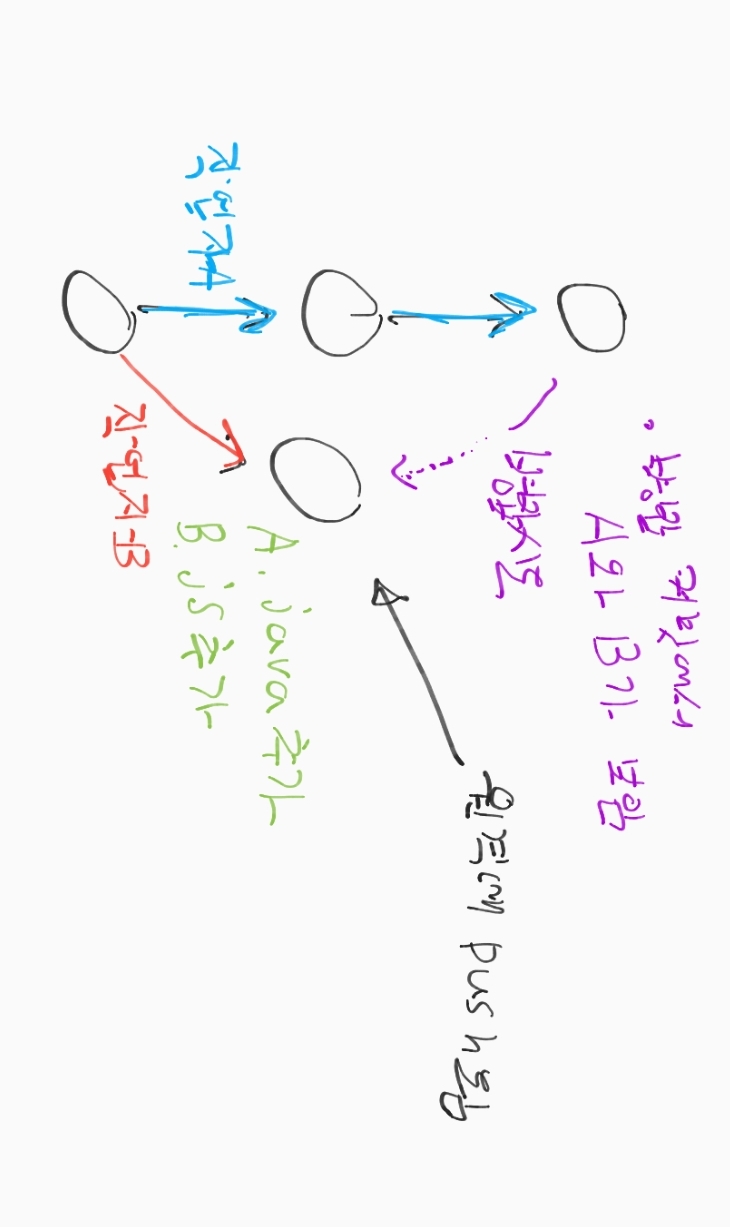 . 병합 커밋에서
A와 B가 보임
병합시도
원격에 push됨
A. java 추가
B. js 추가
작업자A
작업자B